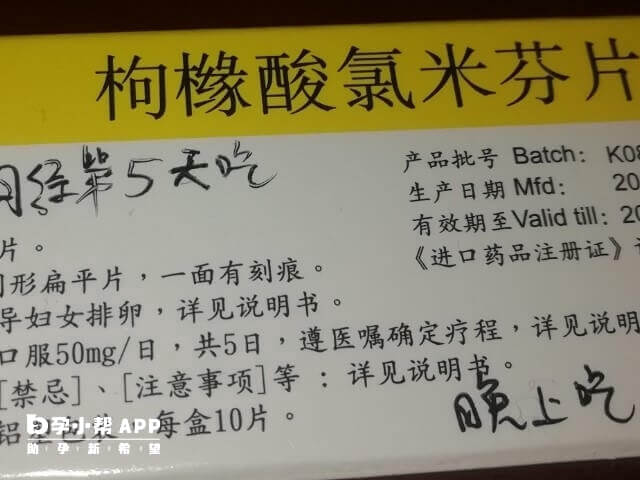 枸橼酸氯米芬片
月经第5天吃
产品批号 Batch: K08
生产日期 Mfd: 20
有效期至Valid till: 20
《进口药品注册证》
片。
形扁平片，一面有刻痕。
导妇女排卵，详见说明书。
口服50mg/日，共5日，遵医嘱确定疗程，详见说明
[禁忌]、[注意事项]等：详见说明书。
铝塑包装，每盒10片。
晚上吃
孕小帮APP
助孕新希望